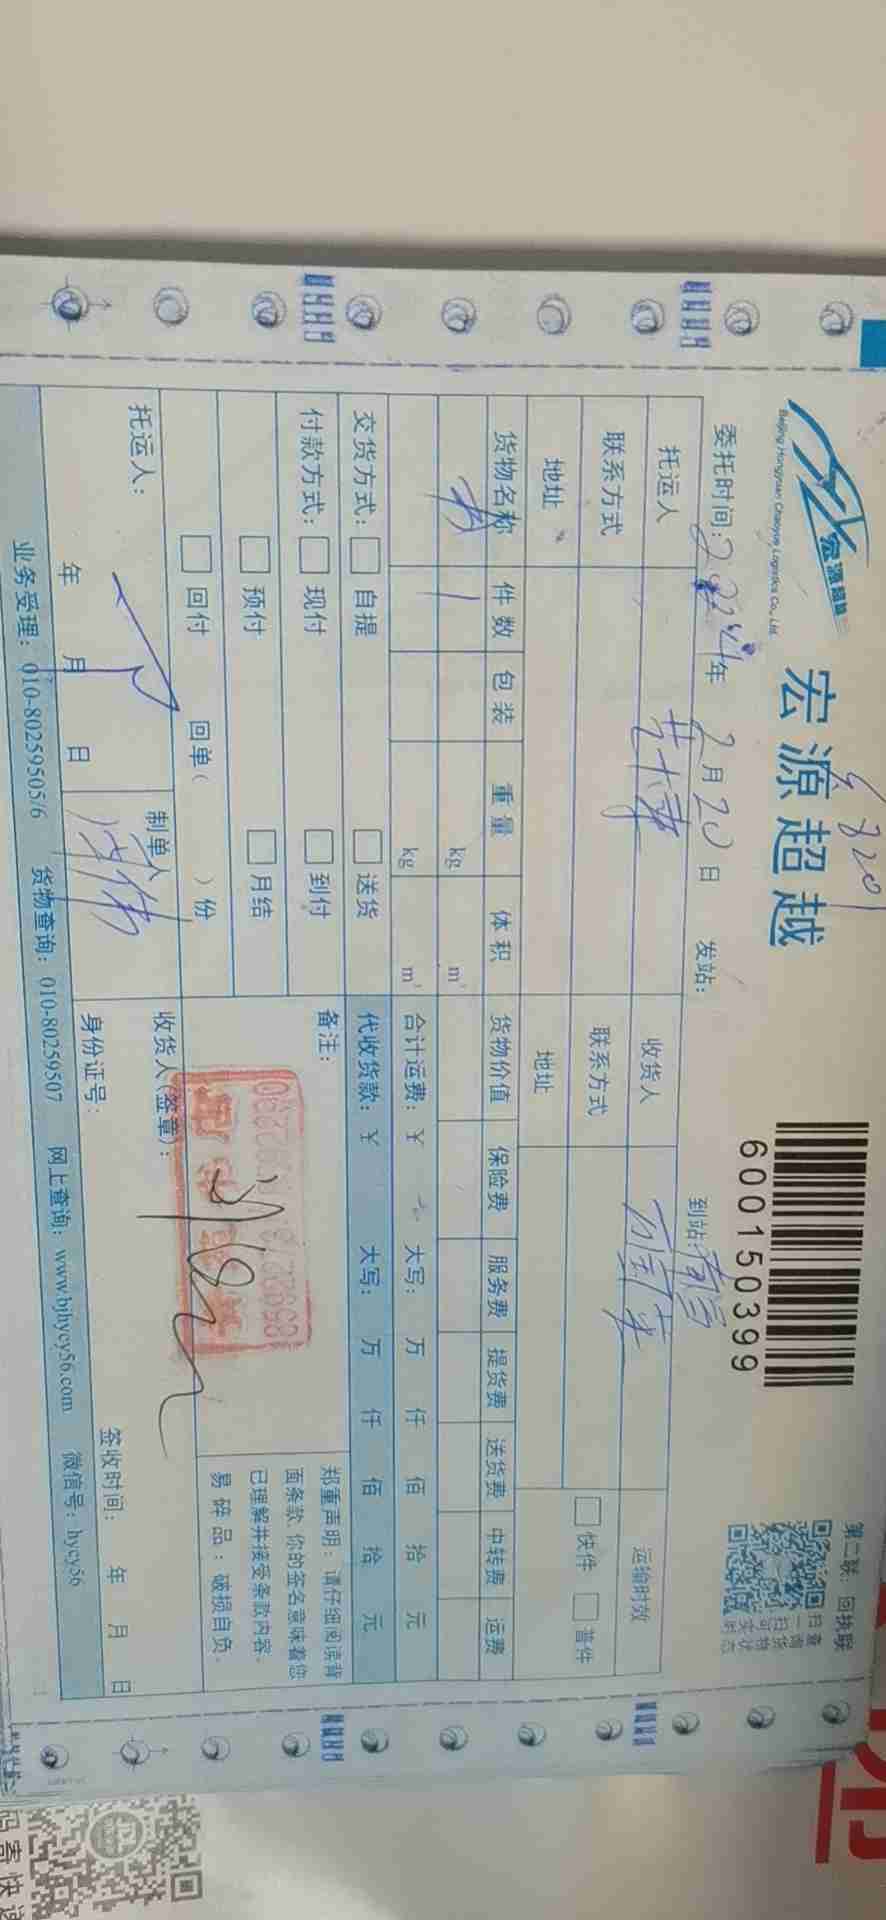 宏源超越
Beijing Hongyuan Chaoyue Logistics Co., Ltd.
宏源超越
600150399
第二联：回执联
扫一扫可查询货物实时状态
委托时间：2024年2月20日 发站： 到站：
托运人 收货人 运输时效
联系方式 联系方式 快件 普件
地址 地址
货物名称 件数 包装 重量 体积 货物价值 保险费 服务费 提货费 送货费 中转费 运费
1 kg m³
kg m³ 合计运费：¥ 大写： 万 仟 佰 拾 元
交货方式： 自提 送货 代收货款：¥ 大写： 万 仟 佰 拾 元
付款方式： 现付 到付 备注：
预付 月结
回付 回单（ ）份
郑重声明：请仔细阅读背
面条款，你的签名意味着您
已理解并接受条款内容。
易碎品：破损自负。
托运人： 制单人 收货人（签章）：
年 月 日 身份证号： 签收时间： 年 月 日
业务受理：010-80259505/6 货物查询：010-80259507 网上查询：www.bjhycy56.com 微信号：hycy56
码寄快递